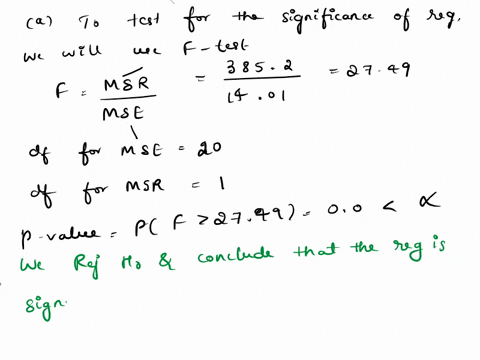 (a) To test for the significance of reg.
we will use F-test
F = MSR / MSE = 385.2 / 14.01 = 27.49
df for MSE = 20
df for MSR = 1
p-value = P( F > 27.49) = 0.0 < α
We Rej H0 & conclude that the reg is
sign.